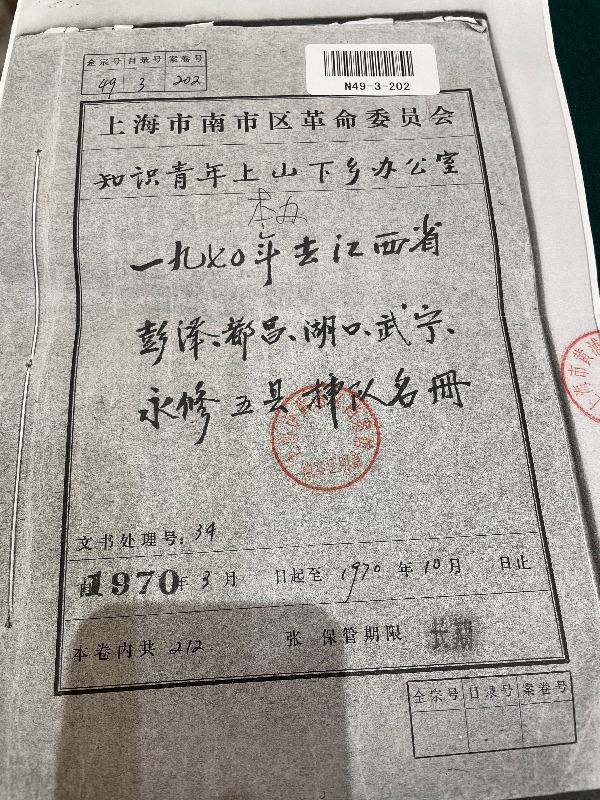 全宗号 目录号 案卷号
49 3 202
N49-3-202
上海市南市区革命委员会
知识青年上山下乡办公室
本办
一九七〇年去江西省
彭泽、都昌、湖口、武宁、
永修五县插队名册
文书处理号:34
自1970年3月 日起至1970年10月 日止
本卷内共212 张 保管期限 长期
全宗号 目录号 案卷号
上海市黄浦